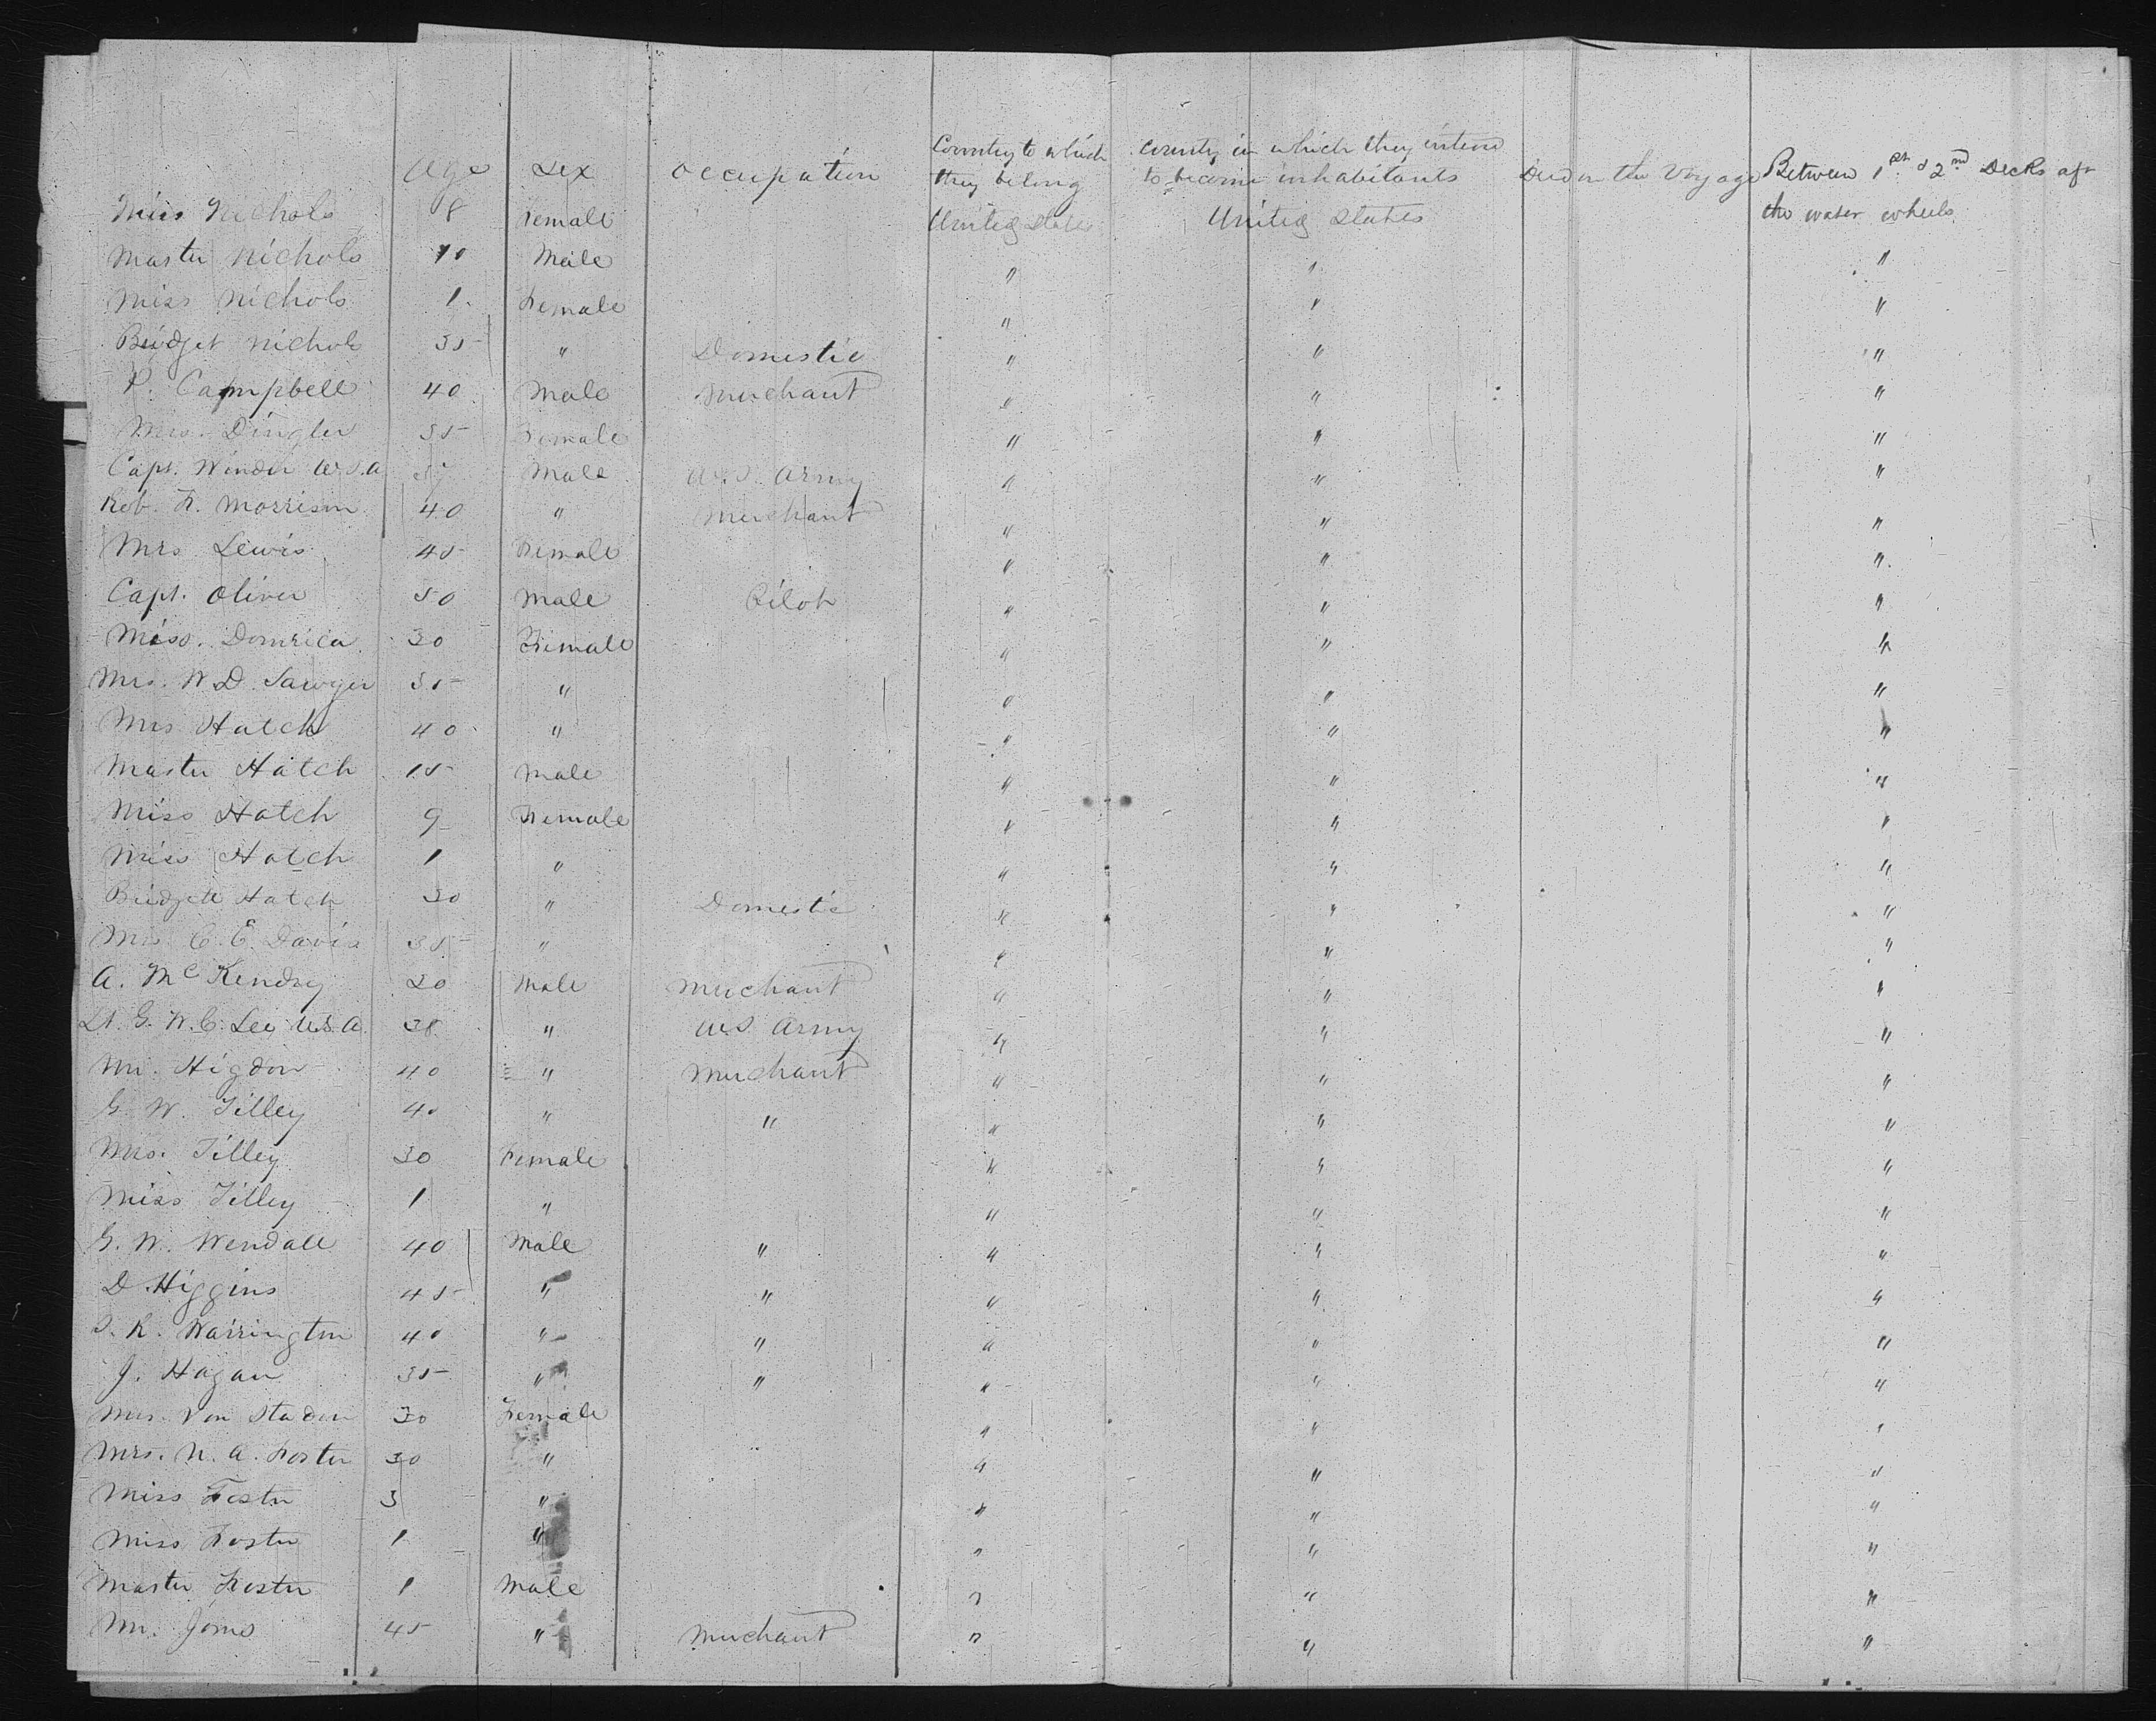 Age Sex Occupation Country to which they belong Country in which they intend to become inhabitants Died on the Voyage Between 1st & 2nd Decks aft the water wheels
Miss Nichols 8 Female United States United States
Master Nichols 10 Male " " "
Miss Nichols 1 Female " " "
Bridget Nichols 35 " Domestic " " "
P. Campbell 40 Male Merchant " " "
Mrs. Dingler 35 Female " " "
Capt. Winder U.S.A Male U.S. Army " " "
Rob. F. Morrison 40 " Merchant " " "
Mrs Lewis 45 Female " " "
Capt. Oliver 50 Male Pilot " " "
Miss. Domrica 30 Female " " "
Mrs. W D. Sawyer 35 " " " "
Mrs Hatch 40 " " " "
Master Hatch 15 Male " " "
Miss Hatch 9 Female " " "
Miss Hatch 1 " " " "
Bridgett Hatch 30 " Domestic " " "
Mrs. C. E. Davis 35 " " " "
A. McKendry 20 Male Merchant " " "
Lt. G. W. C. Lee U.S.A. 28 " U.S Army " " "
Mr. Higdon 40 " Merchant " " "
G. W. Tilley 40 " " " " "
Mrs. Tilley 30 Female " " "
Miss Tilley 1 " " " "
G. W. Wendall 40 Male " " " "
D. Higgins 45 " " " " "
S. R. Warrington 40 " " " " "
J. Hagan 35 " " " " "
Mrs. Von Staden 30 Female " " "
Mrs. N. A. Foster 30 " " " "
Miss Foster 3 " " " "
Miss Foster 1 " " " "
Master Foster 1 Male " " "
Mr. Jones 45 " Merchant " " "